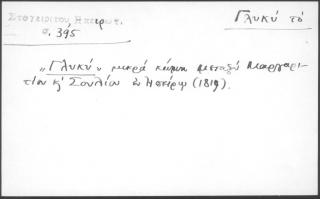 Στοχειρίτου Ηπειρωτ.
σ. 395
Γλυκύ τό
„Γλυκύ„ μικρά κώμη μεταξύ Μαργαρι-
τίου κ' Σουλίου ἐν Ἠπείρῳ (1819).